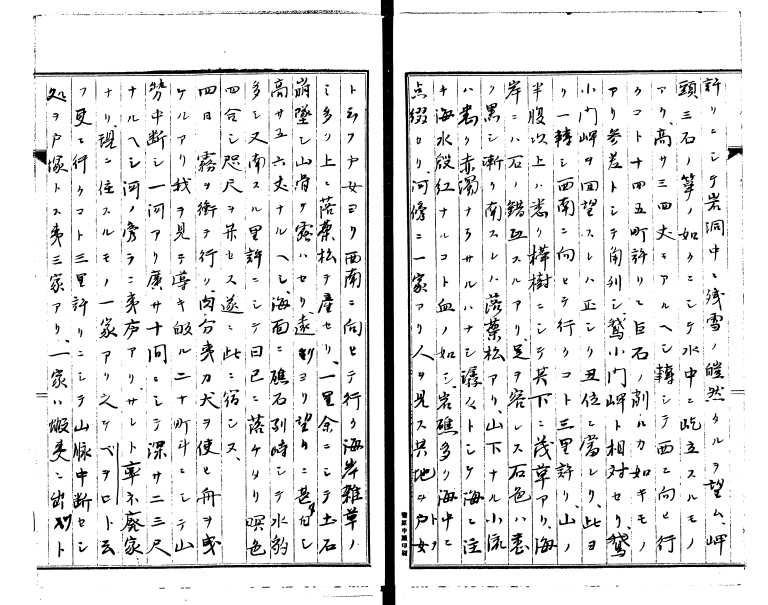 許リニシテ岩洞中ニ残雪ノ皚然タルヲ望ム、岬
頭三石ノ筆ノ如クニシテ水中ニ屹立スルモノ
アリ、高サ三四丈モアルヘシ轉シテ西ニ向ヒ行
クコト十四五町許リ巨石ノ削ルカ如キモノ
アリ参差トシテ角列シ鵞小門岬ト相対セリ、鵞
小門岬ヲ回望スレハ正シク丑位ニ當レリ、此ヨ
リ一轉シ西南ニ向ヒテ行クコト三里許リ、山ノ
半腹以上ハ悉ク樺樹ニシテ其下ニ茂草アリ、海
岸ニハ石ノ錯出スルアリ、足ヲ容レス石色ハ悉
ク黒シ漸ク南スレハ落葉松アリ、山下ナル小流
ハ悉ク赤濁ナラサルハナシ瀑々トシテ海ニ注
キ海水殷紅ナルコト血ノ如シ、岩礁多ク海中ニ
点綴セリ、河傍ニ一家アリ人ヲ見ス其地ヲ戸女
トコフ戸女ヨリ西南ニ向ヒテ行ク海岸雑草ノ
ミ多シ上ニ落葉松ヲ産セリ、一里余ニシテ土石
崩墜シ山骨ヲ露ハセリ遠ヨリ望ムニ甚白シ
高サ五六丈ナルヘシ、海面ニ礁石列峙シテ水豹
多シ又南スル里許ニシテ日已ニ落ケタリ暝色
四合シ咫尺ヲ弁セス遂ニ此ニ宿シス、
四日　霧ヲ衝テ行ク、肉分夷乃犬ヲ使ヒ舟ヲ曳
ケルアリ我ヲ見テ導キ皈ル二十町斗ニシテ山
勢中断シ一河アリ廣サ十間ニシテ深サ二三尺
ナルヘシ河ノ旁ラニ夷庐アリ、サレト率ネ廃家
ナリ、現ニ住スルモノ一家アリ之ヲベヲロト云
フ更ニ行クコト三里許リニシテ山脉中断セシ
処ヲ戸塚トス夷三家アリ、一家ハ蝦夷ニ出ト